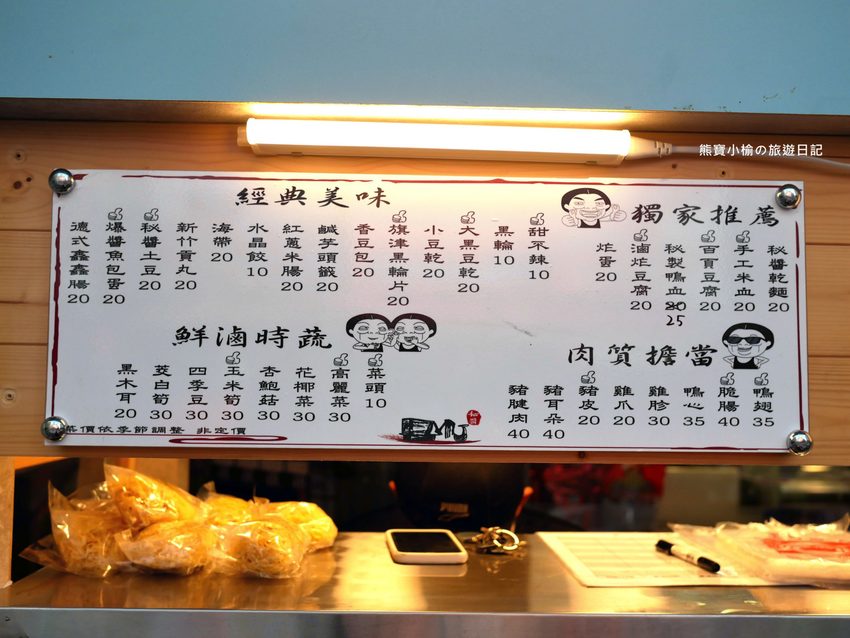 熊寶小榆の旅遊日記
獨家推薦
秘醬乾麵 20
手工米血 20
百頁豆腐 20
秘製鴨血 20 25
滷炸豆腐 20
炸蛋 20
經典美味
甜不辣 10
黑輪 10
大黑豆乾 20
小豆乾 20
旗津黑輪片 20
香豆包 20
鹹芋頭籤 20
紅蔥米腸 20
水晶餃 10
海帶 20
新竹貢丸 20
秘醬土豆 20
爆醬魚包蛋 20
德式鑫鑫腸 20
肉質擔當
鴨翅 35
脆腸 40
鴨心 35
雞胗 30
雞爪 20
豬皮 20
豬耳朵 40
豬腱肉 40
鮮滷時蔬
菜頭 10
高麗菜 30
花椰菜 30
杏鮑菇 30
玉米筍 30
四季豆 30
茭白筍 30
黑木耳 20
菜價依季節調整 非定價